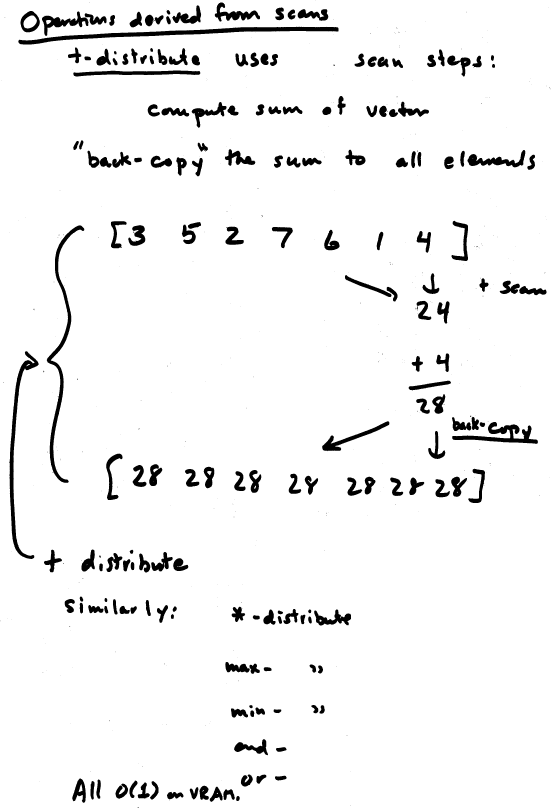 Operations derived from scans
+-distribute uses scan steps:
compute sum of vector
"back-copy" the sum to all elements
[3 5 2 7 6 1 4]
+ scan
24
+ 4
28
back-copy
[28 28 28 28 28 28 28]
+ distribute
Similarly: *-distribute
max- "
min- "
and-
or-
All O(1) on VRAM.